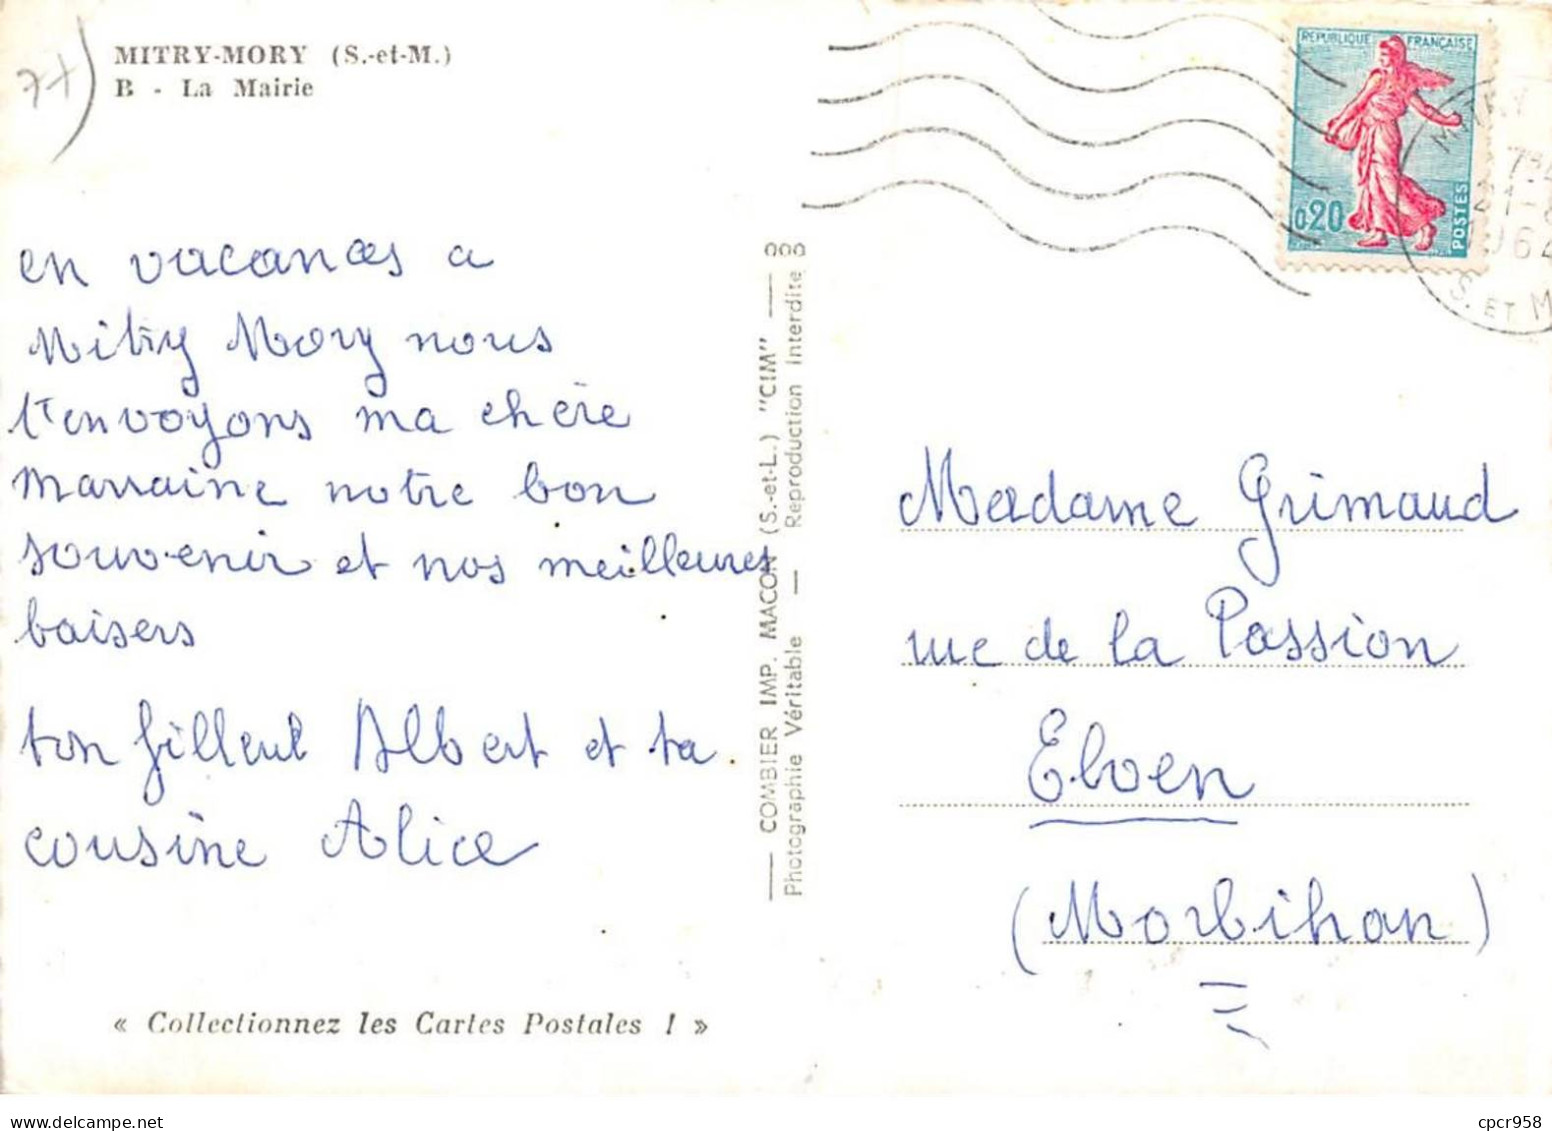 77)
MITRY-MORY (S.-et-M.)
B - La Mairie
en vacances a
Mitry Mory nous
t'envoyons ma chère
Marraine notre bon
souvenir et nos meilleures
baisers
ton filleul Albert et ta
cousine Alice
« Collectionnez les Cartes Postales ! »
COMBIER IMP. MACON (S.-et-L.) "CIM"
Photographie Véritable — Reproduction Interdite
REPUBLIQUE FRANÇAISE
0,20
POSTES
MITRY
1964
S. ET M
Madame Grimaud
rue de la Passion
Elven
(Morbihan)
cpcr958